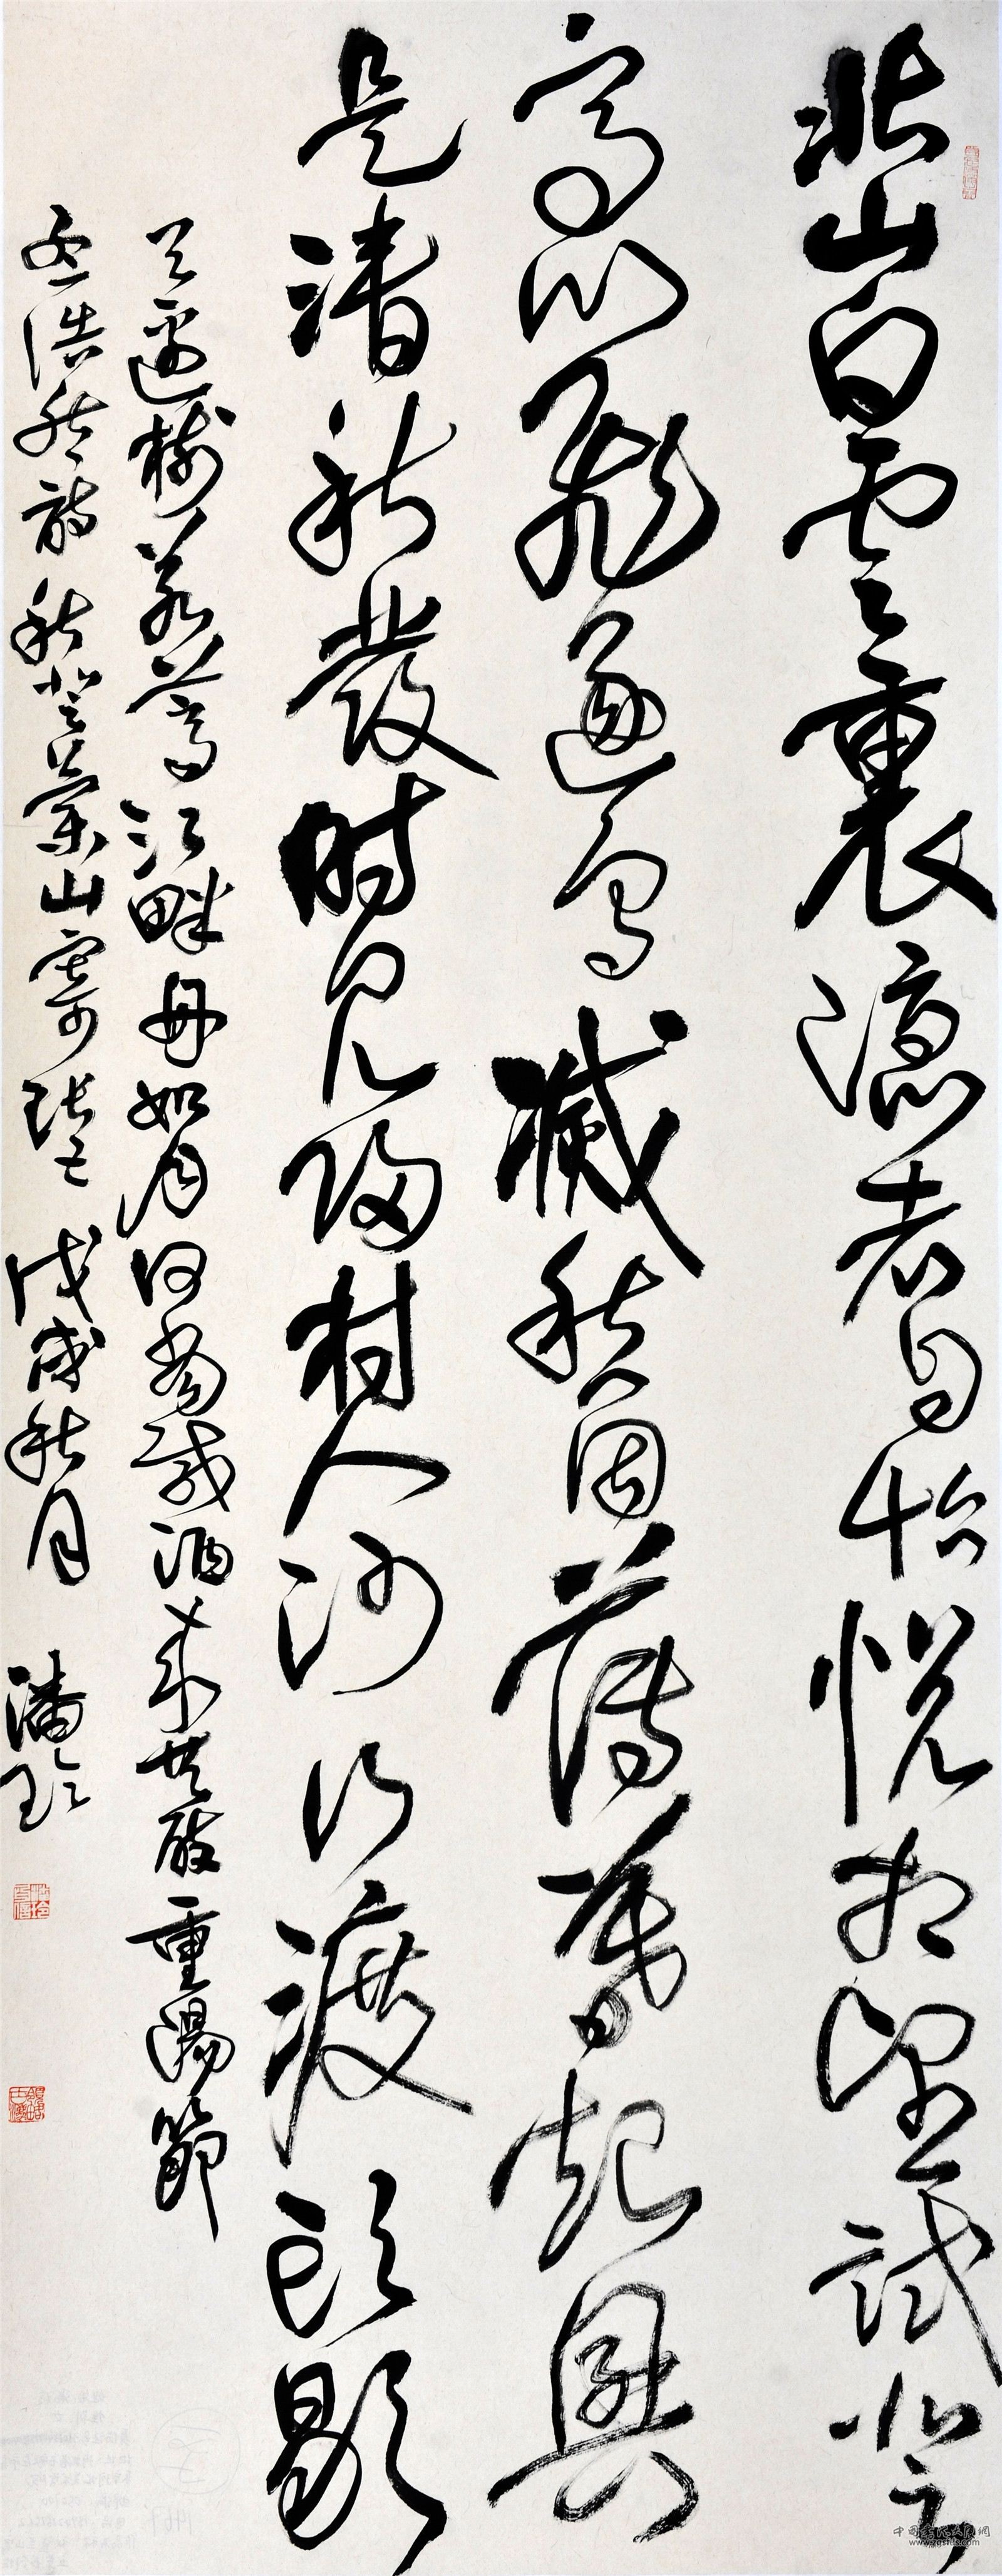 北山白雲裏隱者自怡悅相望試登
高心飛逐鳥滅愁因薄暮起興
是清秋發時見歸村人沙行渡頭歇
天邊樹若薺江畔舟如月何當載酒來共醉重陽節
孟浩然詩秋登蘭山寄張五 戊戌秋月 潘玲